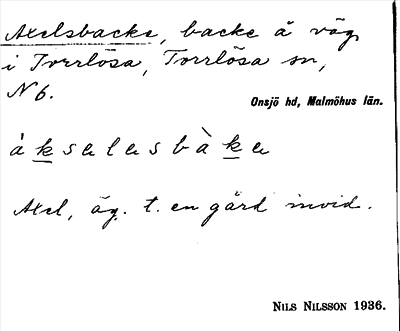 Axelsbacke, backe å väg
i Torrlösa, Torrlösa sn,
N 6.
Onsjö hd, Malmöhus län.
à k s ɐ l ɐ s b à k ɐ
Axel, äg. t. en gård invid.
NILS NILSSON 1936.